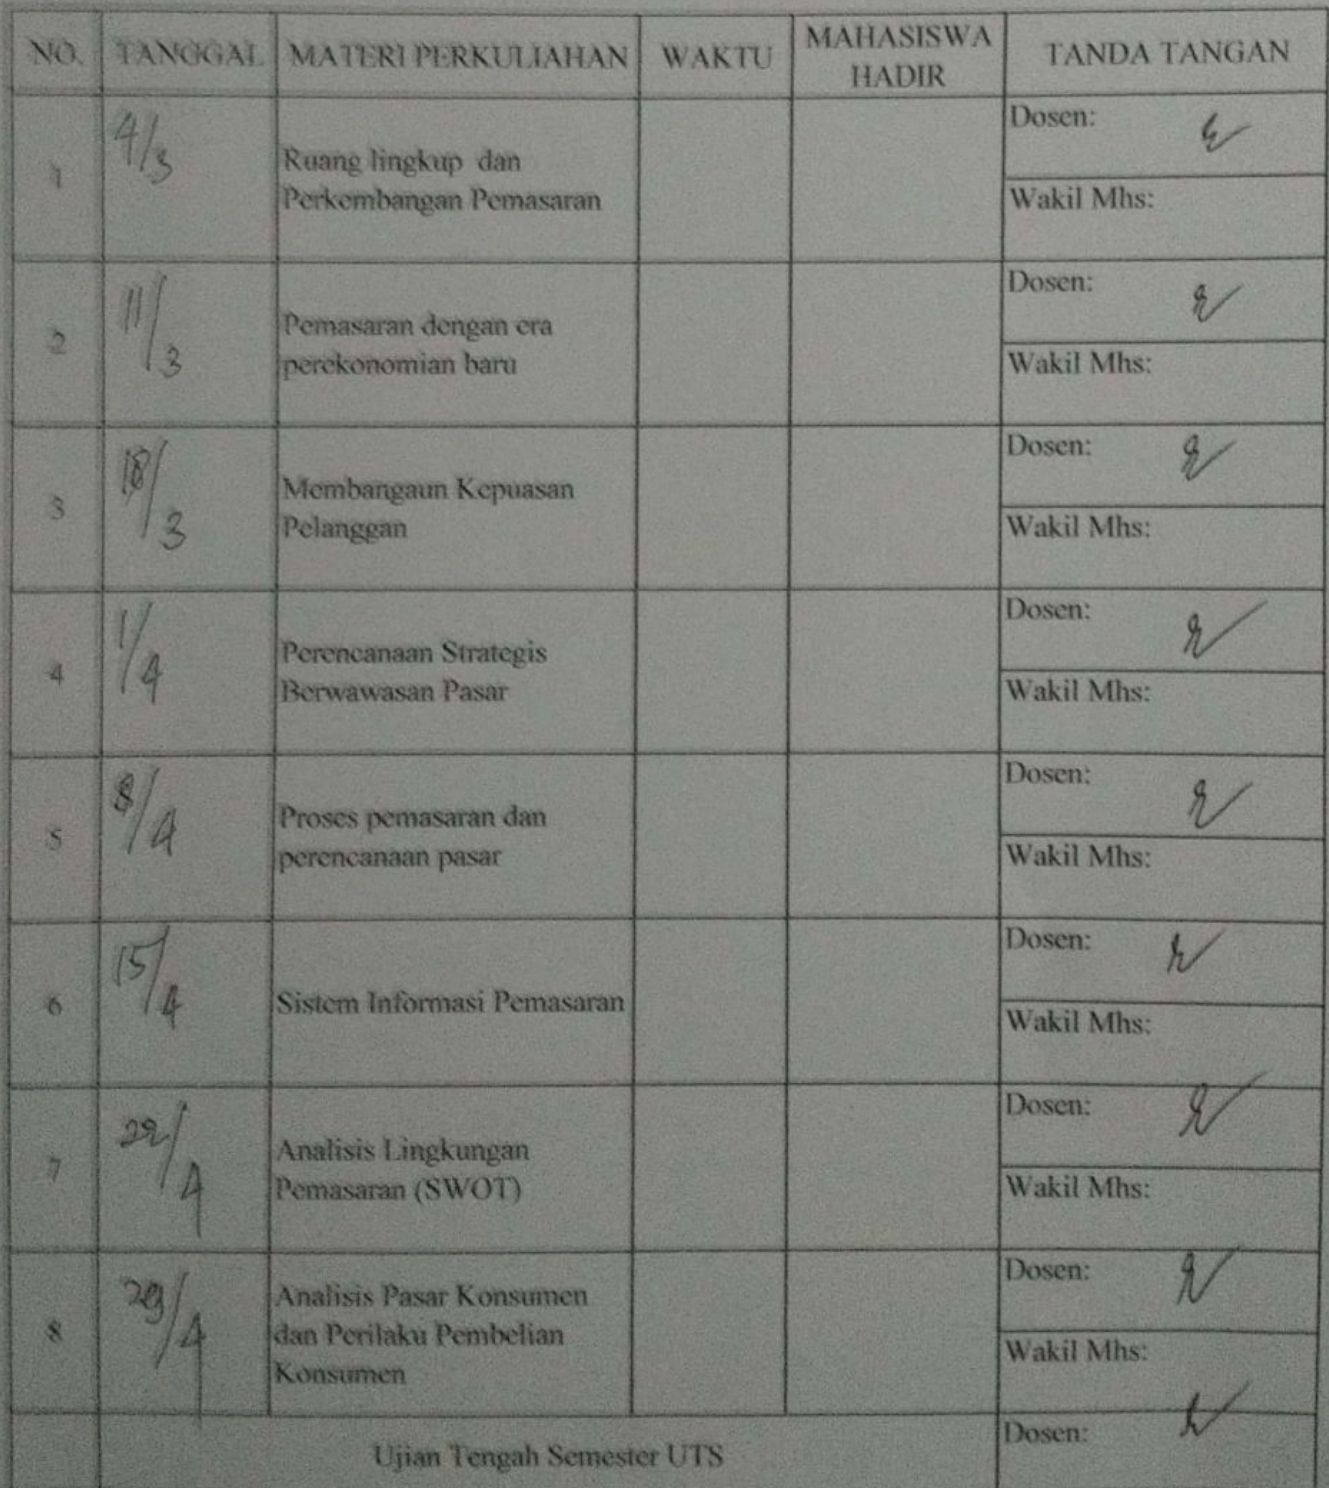 NO. TANGGAL MATERI PERKULIAHAN WAKTU MAHASISWA HADIR TANDA TANGAN
1 4/3 Ruang lingkup dan
Perkembangan Pemasaran
Dosen:
Wakil Mhs:
2 11/3 Pemasaran dengan era
perekonomian baru
Dosen:
Wakil Mhs:
3 18/3 Membangaun Kepuasan
Pelanggan
Dosen:
Wakil Mhs:
4 1/4 Perencanaan Strategis
Berwawasan Pasar
Dosen:
Wakil Mhs:
5 8/4 Proses pemasaran dan
perencanaan pasar
Dosen:
Wakil Mhs:
6 15/4 Sistem Informasi Pemasaran
Dosen:
Wakil Mhs:
7 22/4 Analisis Lingkungan
Pemasaran (SWOT)
Dosen:
Wakil Mhs:
8 29/4 Analisis Pasar Konsumen
dan Perilaku Pembelian
Konsumen
Dosen:
Wakil Mhs:
Ujian Tengah Semester UTS
Dosen: